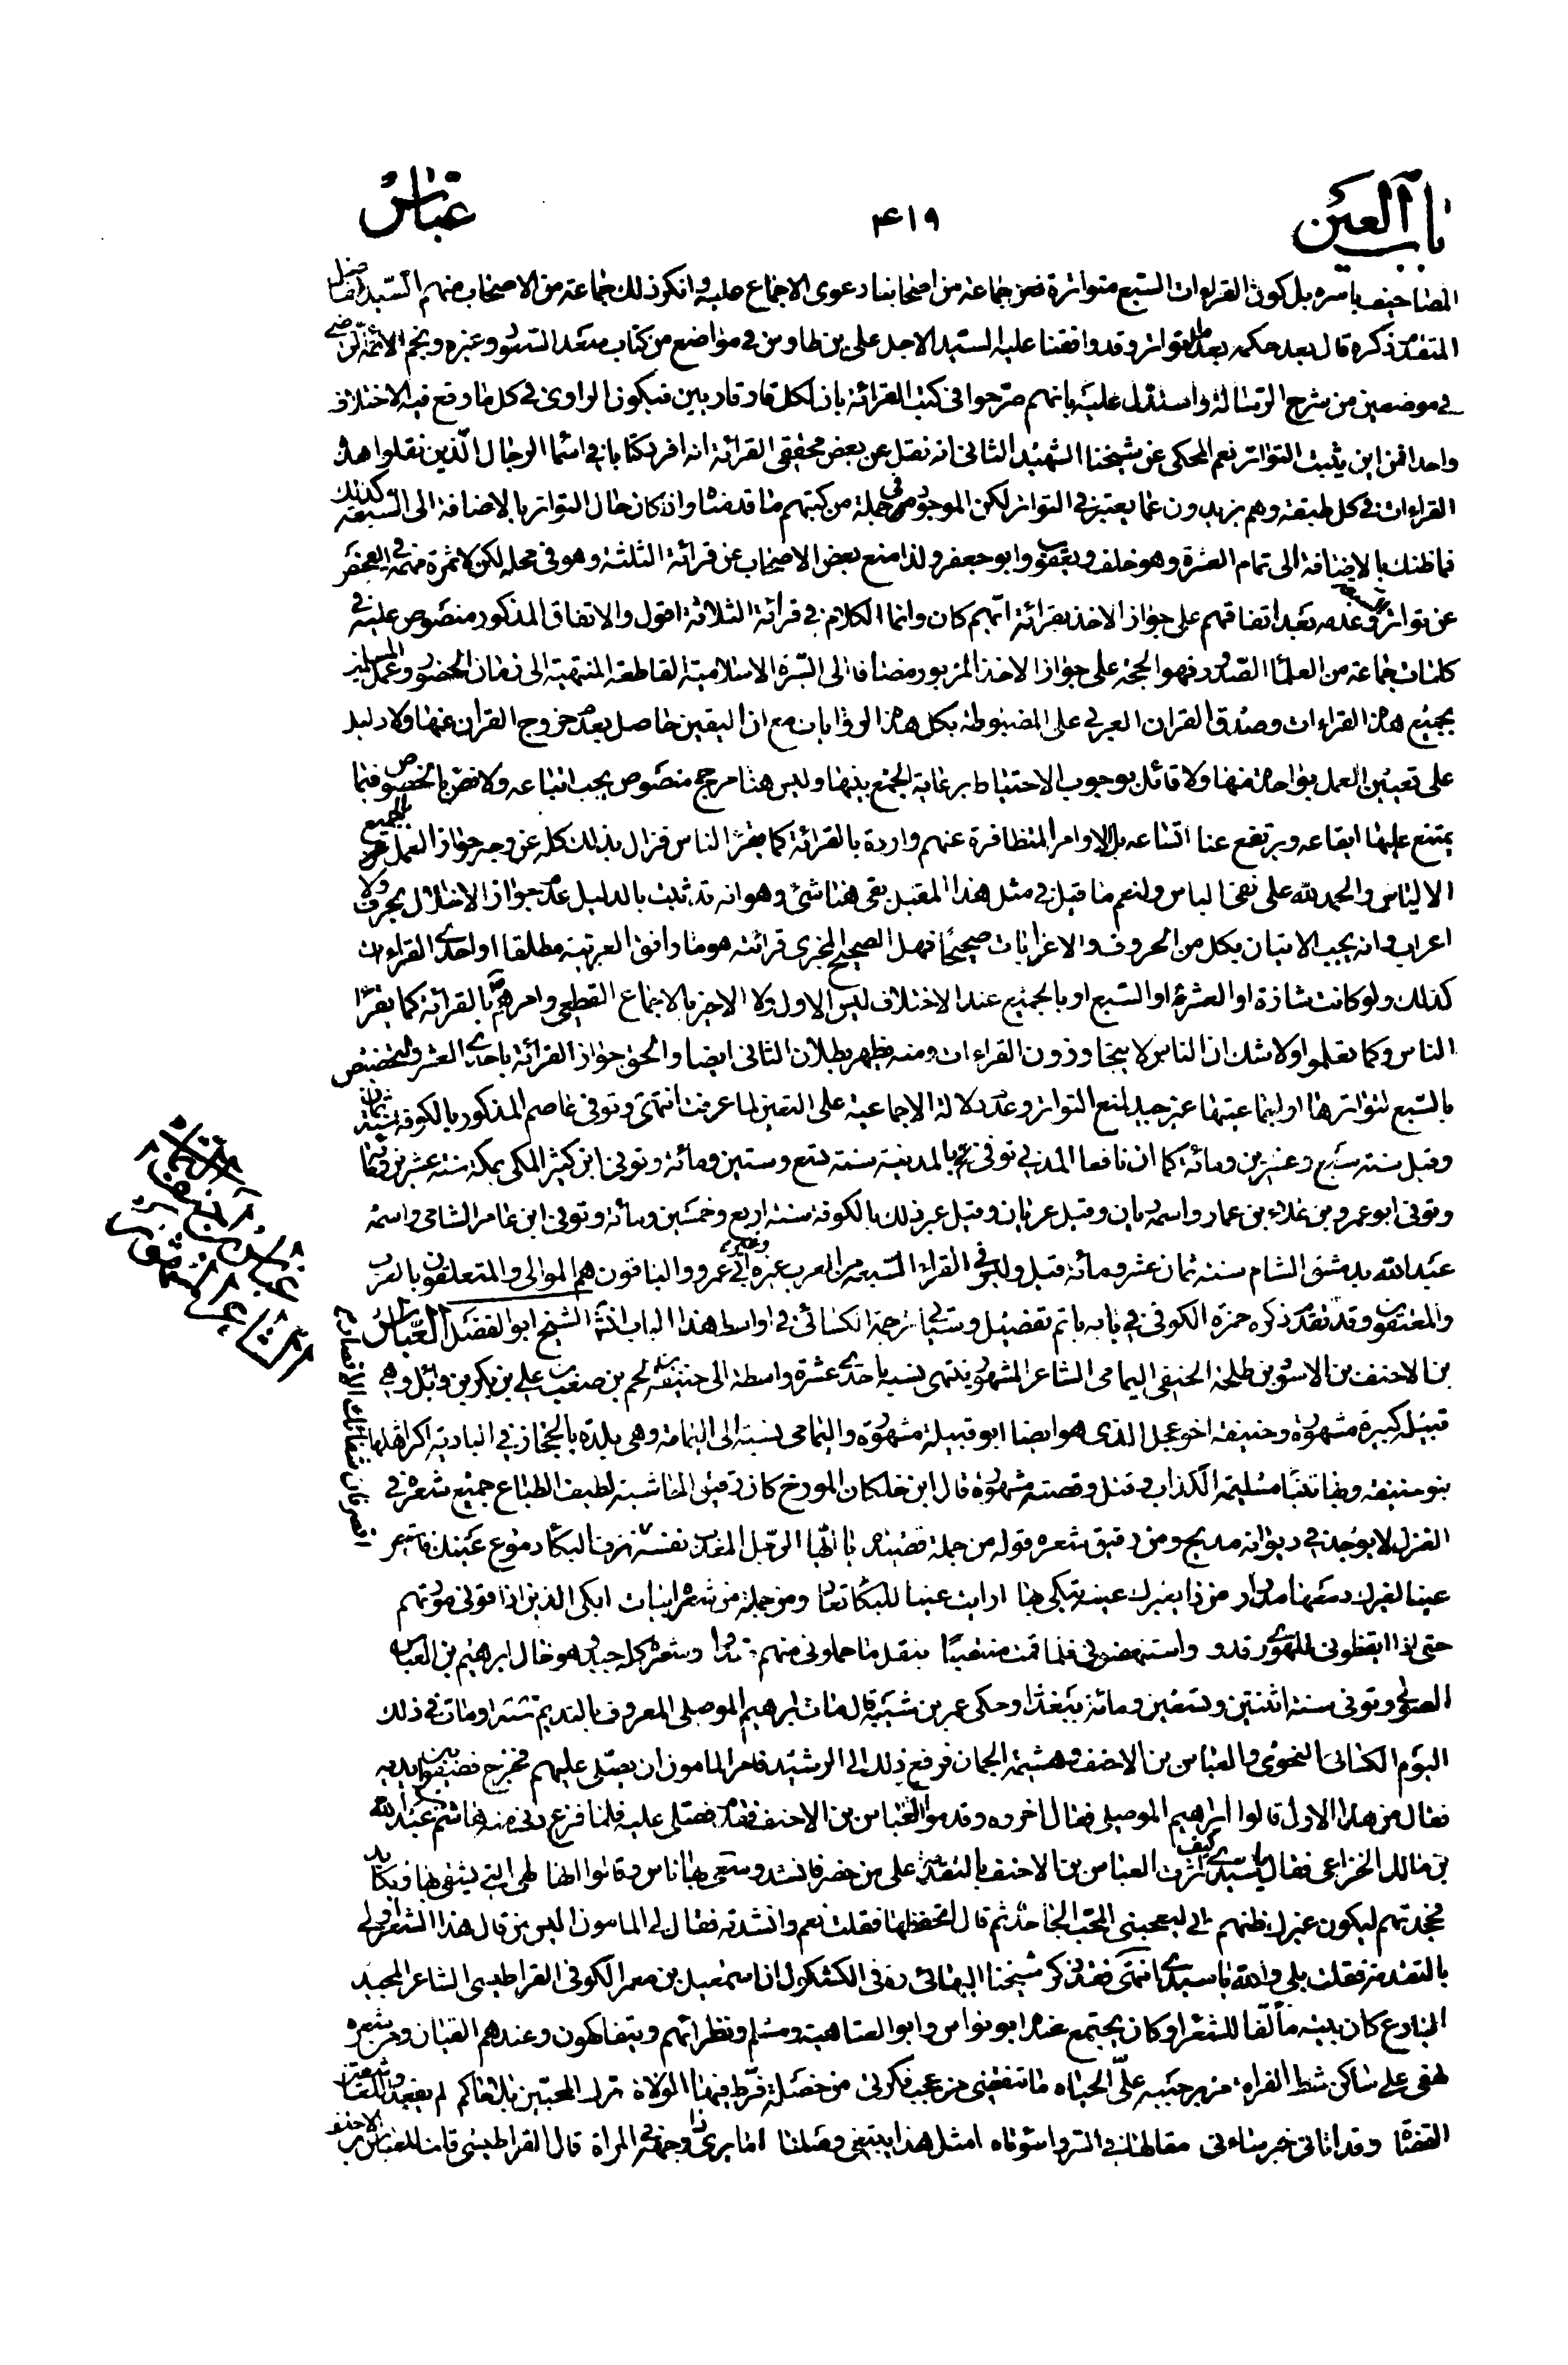 باب العين
۴۱۹
عباس
المصاحف باسره بل كون القراءات السبع متواترة فعن جماعة من اصحابنا دعوى الاجماع عليه وانكر ذلك جماعة من الاصحاب منهم السيد الفاضل
المتقدم ذكره قال بعد حكمه بعدم تواتر وقد وافقنا عليه السيد الاجل علي بن طاوس في مواضع من كتاب سعد السعود وغيره ونجم الائمة الرضي
في موضعين من شرح الرسالة واستدل عليه بانهم صرحوا في كتب القرائة بان لكل قار وقاريين فيكون الراوي في كل ما وقع فيه الاختلاف
واحدا فمن اين يثبت التواتر نعم المحكي عن شيخنا الشهيد الثاني انه نقل عن بعض محققي القرائة انه افرد كتابا في اسماء الرجال الذين نقلوا هذه
القراءات في كل طبقة وهم يزيدون عما يعتبر في التواتر لكن الموجود في جملة من كتبهم ما قدمناه واذ كان حال التواتر بالاضافة الى السبعة كذلك
فما ظنك بالاضافة الى تمام العشرة وهو خلف ويعقوب وابو جعفر ولذا منع بعض الاصحاب عن قرائة الثلثة وهو في محله لكن لا ثمرة مهمة في الفحص
عن تواتر السبعة وعدمه بعد اتفاقهم على جواز الاخذ بقرائة ايهم كان وانما الكلام في قرائة الثلاثة اقول والاتفاق المذكور منصوص عليه في
كلمات جماعة من العلماء الصدور فهو الحجة على جواز الاخذ المزبور مضافا الى السيرة الاسلامية القاطعة المنتهية الى زمان الحضور وعمل المسلمين
بجميع هذه القراءات وصدق القران العربي على المضبوطة بكل هذه الروايات مع ان اليقين حاصل بعدم خروج القران عنها ولا دليل
على تعيين العمل بواحدة منها ولا قائل بوجوب الاحتياط برعاية الجمع بينها وليس هنا مرجح منصوص يجب اتباعه ولا نص بالخصوص فيما
يمتنع عليها ايقاعه ويرتفع عنا اتساعه بل الاوامر المتظافرة عنهم واردة بالقرائة كما يقرأ الناس فزال بذلك كله عن وجه جواز العمل بالجميع
الالباس والحمد لله على نفي الباس ولنعم ما قيل في مثل هذا المقيل بقي هنا شئ وهو انه قد ثبت بالدليل عدم جواز الاخلال بحرف ولا
اعراب وانه يجب الاتيان بكل من الحروف والاعرابات صحيحا فهل الصحيح المجزي قرائته هو ما وافق العربية مطلقا او احدى القراءات
كذلك ولو كانت شاذة او العشرة او السبع او بالجميع عند الاختلاف ليس الاول ولا الاخير بالاجماع القطعي وامرهم بالقرائة كما يقرأ
الناس وكما تعلموا ولا شك ان الناس لا يتجاوزون القراءات ومنه يظهر بطلان الثاني ايضا والحق جواز القرائة باحدى العشر والتخصيص
بالسبع لتواترها او اجماعيتها غير جيد لمنع التواتر وعدم دلالة الاجماعية على التعين لما عرفت انتهى وتوفي عاصم المذكور بالكوفة سنة ثمان
وقيل سنة سبع وعشرين ومائة كما ان نافعا المدني توفي بالمدينة سنة تسع وستين ومائة وتوفي ابن كثير المكي بمكة سنة عشرين ومائة
وتوفي ابو عمرو بن علاء بن عمار واسمه زبان وقيل عريان وقيل غير ذلك بالكوفة سنة اربع وخمسين ومائة وتوفي ابن عامر الشامي واسمه
عبد الله بدمشق الشام سنة ثمان عشر ومائة قيل وليس في القراء السبعة من العرب غيره وغير ابي عمرو والباقون هم الموالي والمتعلقون بالعرب
والمعتقون وقد تقدم ذكره حمزة الكوفي في بابه باتم تفصيل وستأتي ترجمة الكسائي في اواسط هذا الباب انش الشيخ ابو الفضل العباس
بن الاحنف بن الاسود بن طلحة الحنفي اليمامي الشاعر المشهور ينتهي نسبه باحدى عشرة واسطة الى حنيفة بن لجيم بن صعب بن علي بن بكر بن وائل وهي
قبيلة كبيرة مشهورة وحنيفة اخو عجل الذي هو ايضا ابو قبيلة مشهورة واليمامي نسبة الى اليمامة وهي بلدة بالحجاز في البادية اكثر اهلها
بنو حنيفة وبها تنبأ مسيلمة الكذاب وقتل وقصته مشهورة قال ابن خلكان المورخ كان رقيق الحاشية لطيف الطباع جميع شعره في
الغزل لا يوجد في ديوانه مديح ومن رقيق شعره قوله من جملة قصيدة يا ايها الرجل المعذب نفسه نزف البكاء دموع عينك فاستعر
عينا لغيرك دمعها مدرار من ذا يعيرك عينه تبكي بها ارايت عينا للبكاء تعار ومن جملة من شعره ابيات ابكي الذين اذاقوني مودتهم
حتى اذا ايقظوني للهوى رقدوا واستنهضوني فلما قمت منتصبا بثقل ما حملوني منهم وشعره كله جيد وهو خال ابرهيم بن العباس
الصولي وتوفي سنة اثنتين وتسعين ومائة ببغداد وحكى عمر بن شبة قال مات ابرهيم الموصلي المعروف بالنديم ومات في ذلك
اليوم الكسائي النحوي والعباس بن الاحنف وهشيمة الخمارة فرفع ذلك الى الرشيد فامر المامون ان يصلي عليهم فخرج فصفوا بين يديه
فقال من هذا الاول قالوا ابراهيم الموصلي فقال اخروه وقدموا العباس بن الاحنف فقدم فصلى عليه فلما فرغ دنى منه هاشم بن عبد الله
بن مالك الخزاعي فقال يا سيدي كيف اثرت العباس بن الاحنف بالتقدمة على من حضر فانشد وسعى بها ناس وقالوا انها لهي التي يشقى بها ويكابد
فجحدتهم ليكون غيرك ظنهم اني ليعجبني المحب الجاحد ثم قال اتحفظها فقلت نعم وانشدته فقال لي المامون اليس من قال هذا الشعر اولى
بالتقدمة فقلت بلى والله يا سيدي انتهى وقد ذكر شيخنا البهائي ره في الكشكول ان اسمعيل بن معمر الكوفي القراطيسي الشاعر المجيد
البارع كان بيته مألفا للشعراء وكان يجتمع عنده ابو نواس وابو العتاهية ومسلم ونظرائهم ويتفاكهون وعندهم القيان ومن شعره
لهفي على ساكن شط الفراة مرر حبيه علي الحياه ما تنقضي من عجب فكرتي من خصلة فرط فيها الولاة ترك المحبين بلا حاكم لم يقعدوا للعاشقين
القضاة وقد اتاني خبر ساءني مقالها في السر واسوتاه امثل هذا يبتغي وصلنا اما يرى ذا وجهه في المرآة قال القراطيسي قلت للعباس بن الاحنف